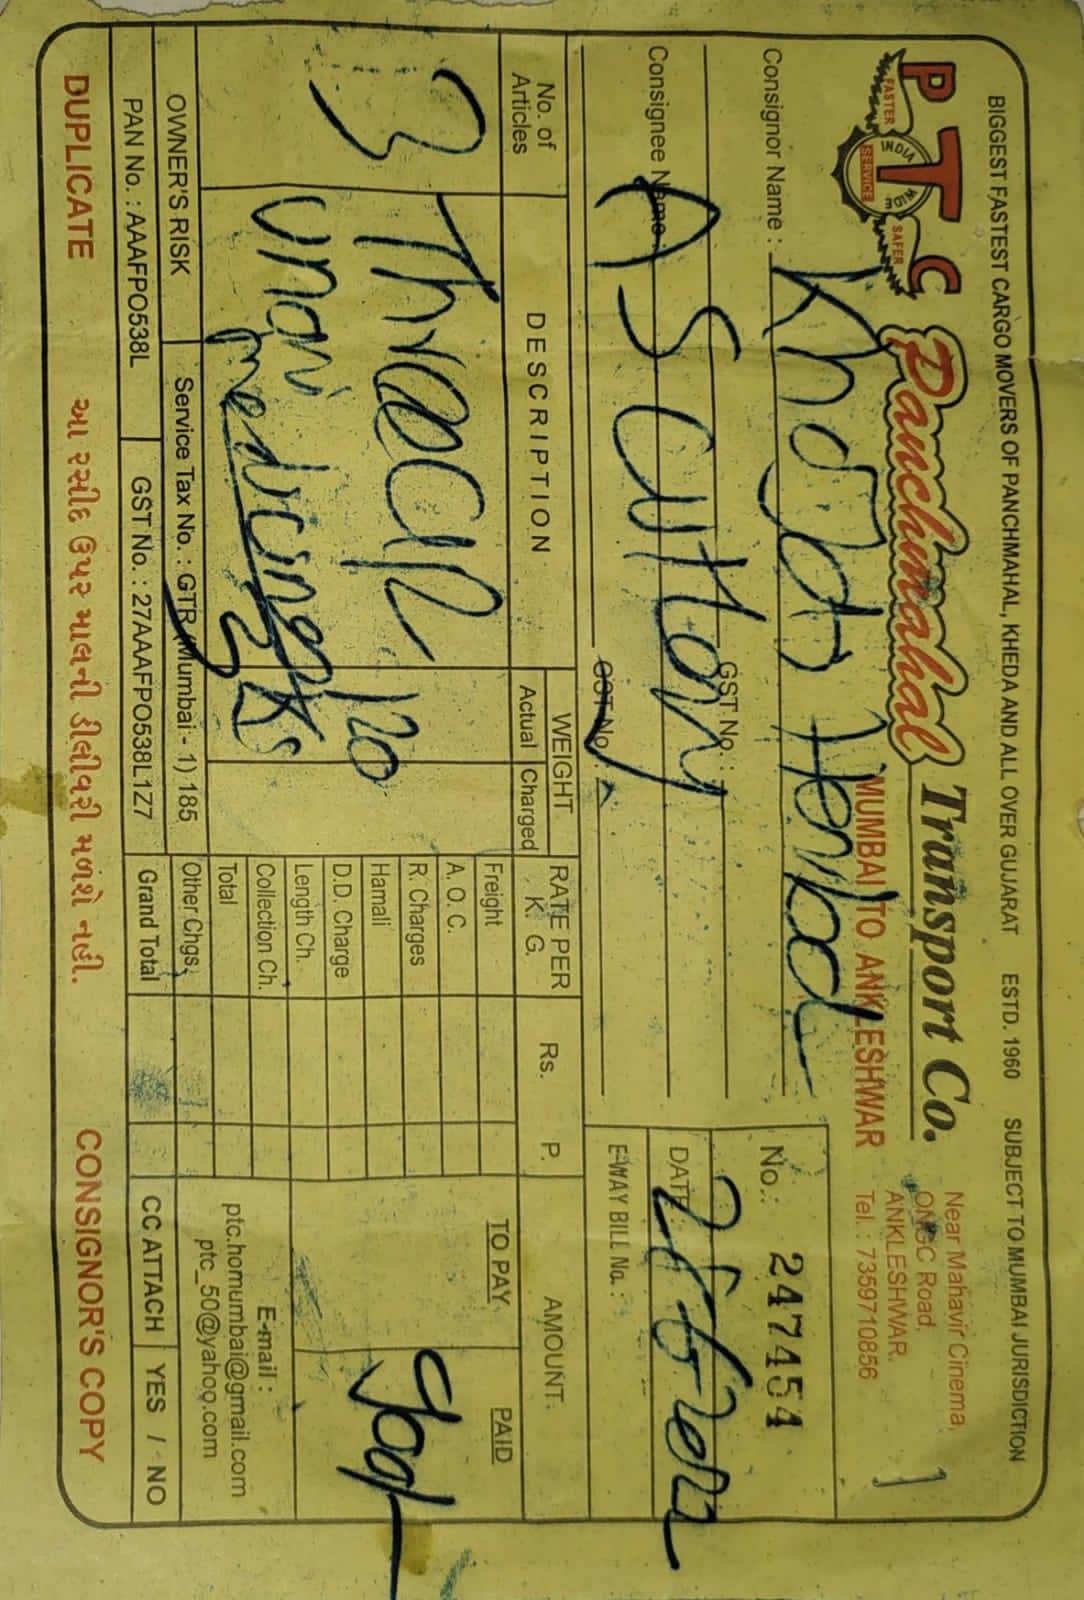 BIGGEST FASTEST CARGO MOVERS OF PANCHMAHAL, KHEDA AND ALL OVER GUJARAT ESTD. 1960 SUBJECT TO MUMBAI JURISDICTION
P T C
FASTER INDIA WIDE SERVICE SAFER
Panchmahal Transport Co.
MUMBAI TO ANKLESHWAR
Near Mahavir Cinema,
ONGC Road,
ANKLESHWAR.
Tel. : 7359710856
Consignor Name :
No.: 247454
GST No. :
DATE :
Consignee Name : A
GST No. :
E-WAY BILL No. :
No. of Articles
DESCRIPTION
WEIGHT
Actual Charged
RATE PER K. G.
Rs. P.
AMOUNT
TO PAY PAID
3
Three
120
Kg
Freight
A. O. C.
R. Charges
Hamali
D.D. Charge
Length Ch.
Collection Ch.
Total
Other Chgs.
Grand Total
E-mail :
ptc.homumbai@gmail.com
ptc_50@yahoo.com
OWNER'S RISK Service Tax No. : GTR (Mumbai - 1) 185
PAN No. : AAAFPO538L GST No. : 27AAAFPO538L1Z7
CC ATTACH YES / NO
DUPLICATE આ રસીદ ઉપર માલની ડીલીવરી મળશે નહી. CONSIGNOR'S COPY